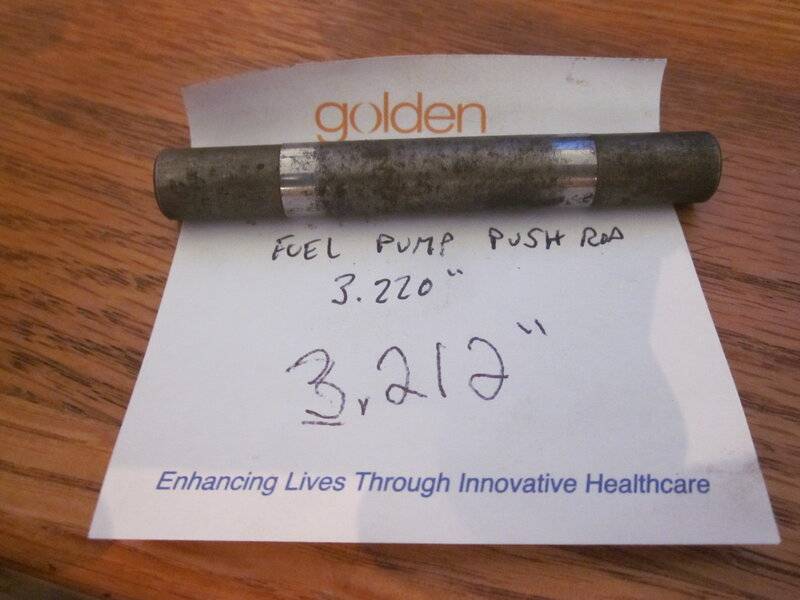 golden
FUEL PUMP PUSH ROD
3.220"
3.212"
Enhancing Lives Through Innovative Healthcare